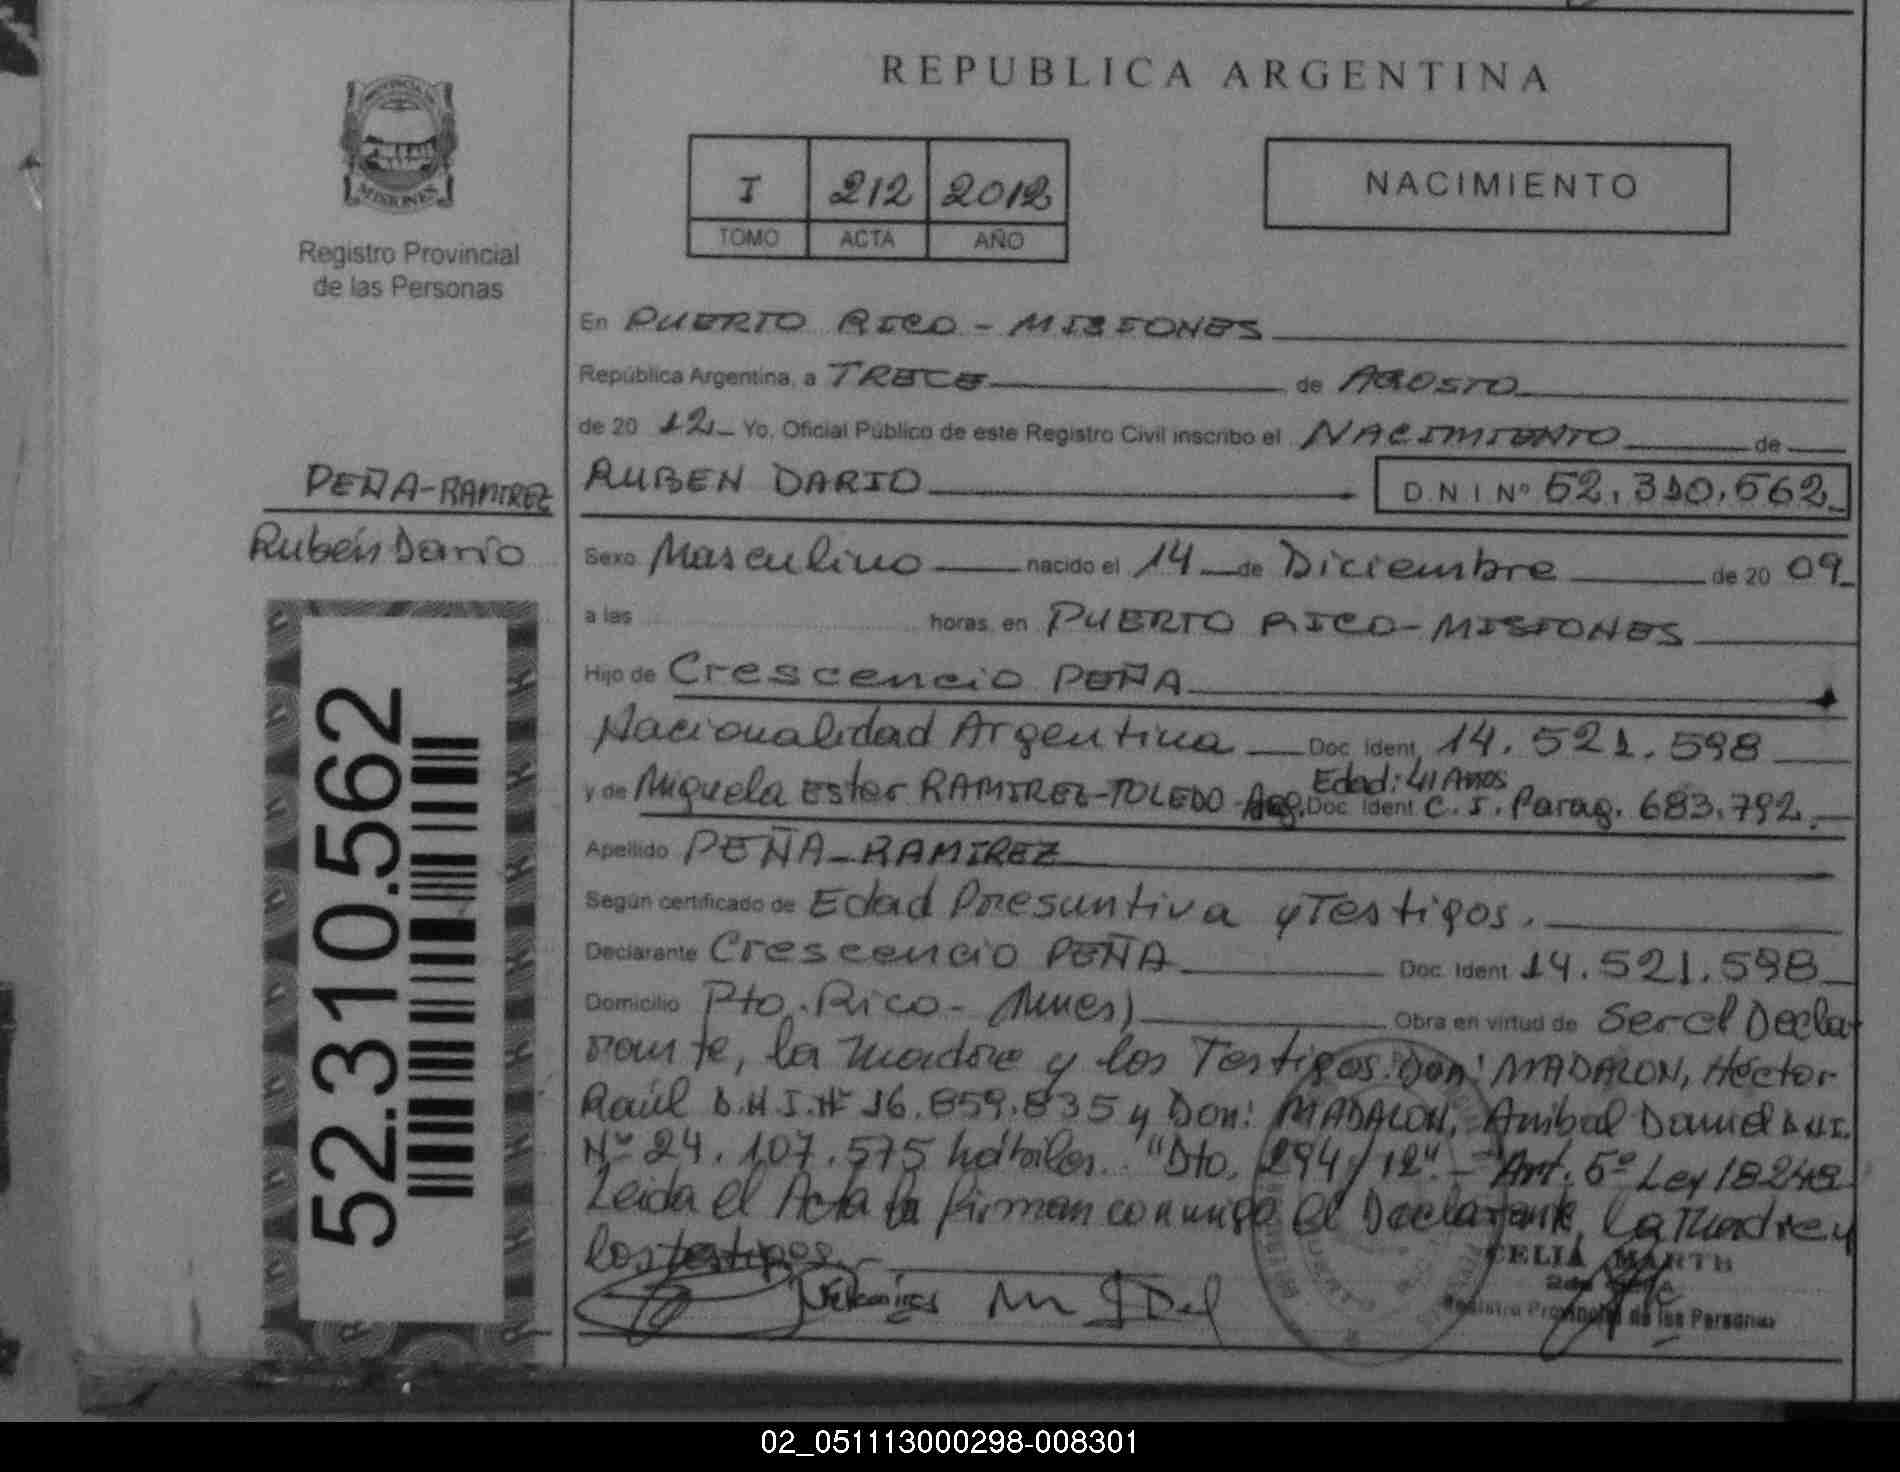 REPUBLICA ARGENTINA
MISIONES
Registro Provincial
de las Personas
I 212 2012
TOMO ACTA AÑO
NACIMIENTO
En PUERTO RICO - MISIONES
República Argentina, a TRECE de AGOSTO
de 20 12 Yo, Oficial Público de este Registro Civil inscribo el NACIMIENTO de
PEÑA-RAMIREZ
Rubén Dario
RUBEN DARIO D.N.I Nº 52.310.562
Sexo Masculino nacido el 14 de Diciembre de 20 09
a las horas, en PUERTO RICO-MISIONES
Hijo de Crescencio PEÑA
Nacionalidad Argentina Doc. Ident. 14.521.598
Edad: 41 Años
y de Miguela Ester RAMIREZ-TOLEDO - Doc. Ident. C.I. Parag. 683.792
Apellido PEÑA-RAMIREZ
Según certificado de Edad Presuntiva y Testigos.
Declarante Crescencio PEÑA Doc. Ident 14.521.598
Domicilio Pto. Rico - Mnes) Obra en virtud de Ser el Decla
rante, la madre y los Testigos: Don: MADALON, Héctor
Raúl D.N.I. Nº 16.859.835 y Don: MADALON, Anibal Daniel D.N.I.
Nº 24.107.575 hábiles. "Dto. 294/12" - Art. 5º Ley 18248
Leida el Acta la firman conmigo el Declarante, la madre y
los testigos
CELIA MARTH
Registro Provincial de las Personas
52.310.562
02_051113000298-008301